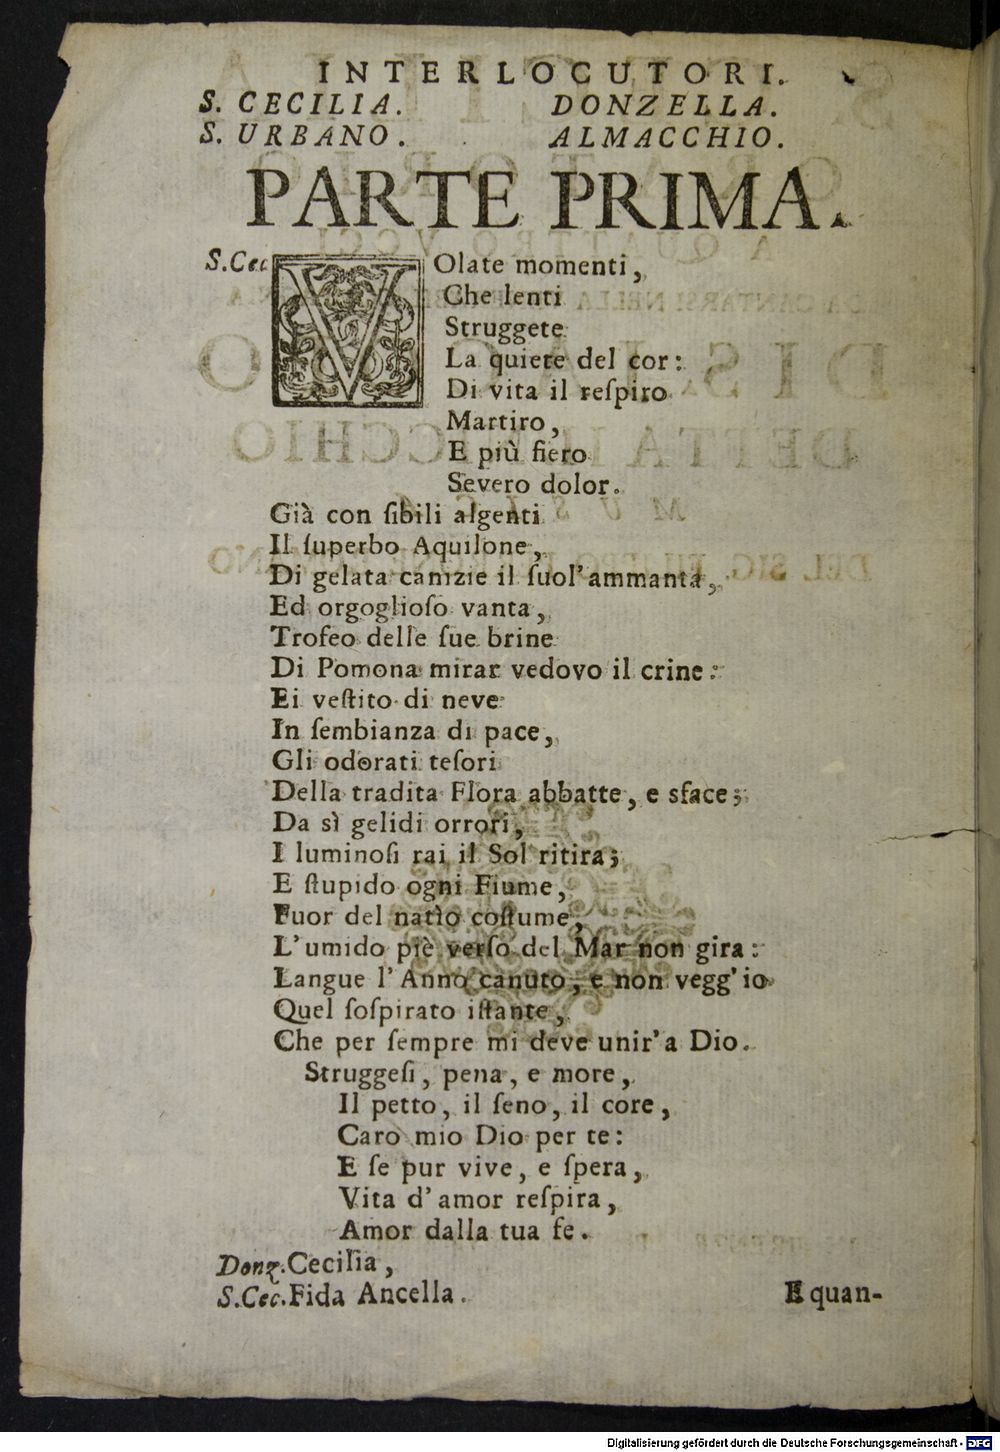 INTERLOCUTORI.
S. CECILIA. DONZELLA.
S. URBANO. ALMACCHIO.
PARTE PRIMA.
S.Cec. VOlate momenti,
Che lenti
Struggete
La quiete del cor:
Di vita il reſpiro
Martiro,
E più fiero
Severo dolor.
Già con ſibili algenti
Il ſuperbo Aquilone,
Di gelata canizie il ſuol' ammanta,
Ed orgoglioſo vanta,
Trofeo delle ſue brine
Di Pomona mirar vedovo il crine:
Ei veſtito di neve
In ſembianza di pace,
Gli odorati teſori
Della tradita Flora abbatte, e sface;
Da sì gelidi orrori,
I luminoſi rai il Sol ritira;
E ſtupido ogni Fiume,
Fuor del natìo coſtume,
L' umido piè verſo del Mar non gira:
Langue l' Anno canuto, e non vegg' io
Quel ſoſpirato iſtante,
Che per ſempre mi deve unir' a Dio.
Struggeſi, pena, e more,
Il petto, il ſeno, il core,
Caro mio Dio per te:
E ſe pur vive, e ſpera,
Vita d' amor reſpira,
Amor dalla tua fe.
Donz. Cecilia,
S.Cec. Fida Ancella.
E quan-
Digitalisierung gefördert durch die Deutsche Forschungsgemeinschaft - DFG